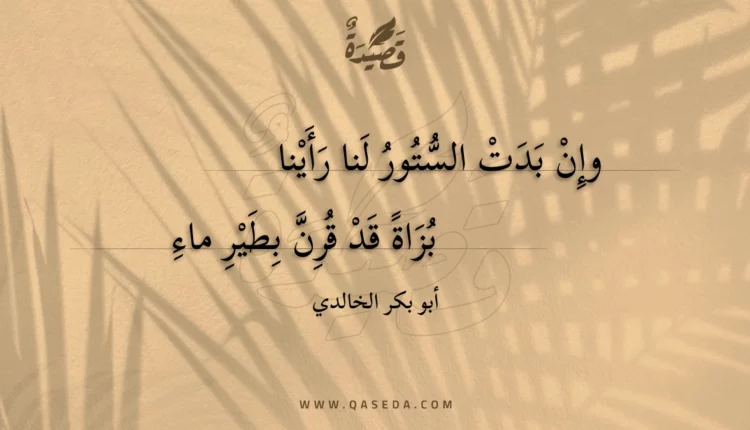 قَصِيْدَةٌ
وإِنْ بَدَتْ السُّتُورُ لَنا رَأَيْنا
بُزَاةً قَدْ قُرِنَّ بِطَيْرِ ماءِ
أبو بكر الخالدي
WWW.QASEDA.COM